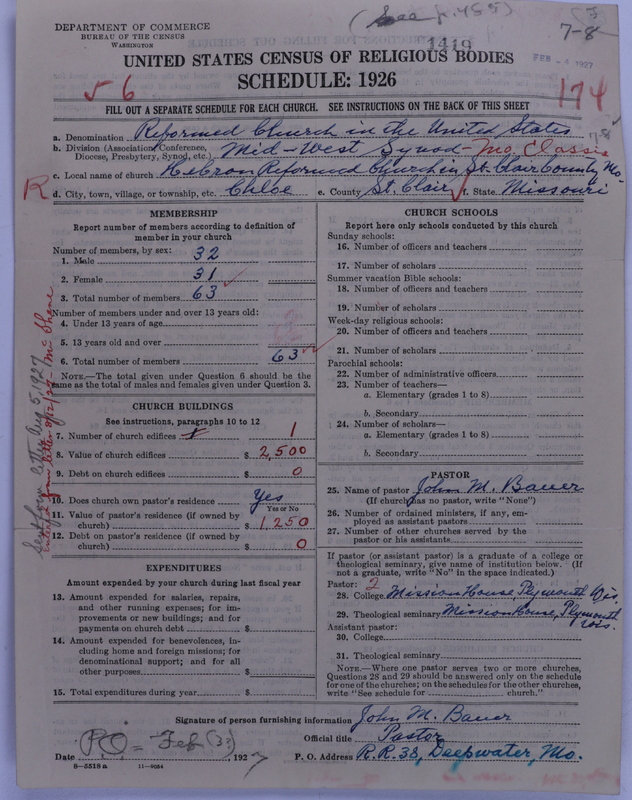 (See p. 455)
DEPARTMENT OF COMMERCE
BUREAU OF THE CENSUS
WASHINGTON
7-8
1419
FEB -4 1927
UNITED STATES CENSUS OF RELIGIOUS BODIES
SCHEDULE: 1926
56
174
FILL OUT A SEPARATE SCHEDULE FOR EACH CHURCH. SEE INSTRUCTIONS ON THE BACK OF THIS SHEET
a. Denomination Reformed Church in the United States
7-8
b. Division (Association, Conference, Diocese, Presbytery, Synod, etc.) Mid-West Synod - Mo. Classis
c. Local name of church Hebron Reformed Church in St. Clair County, Mo.
R
d. City, town, village, or township, etc. Chloe e. County St. Clair f. State Missouri
MEMBERSHIP
Report number of members according to definition of member in your church
Number of members, by sex:
1. Male 32
2. Female 31
3. Total number of members 63
Number of members under and over 13 years old:
4. Under 13 years of age
5. 13 years old and over
6. Total number of members 63
NOTE.—The total given under Question 6 should be the same as the total of males and females given under Question 3.
CHURCH BUILDINGS
See instructions, paragraphs 10 to 12
7. Number of church edifices 1 1
8. Value of church edifices $ 2,500
9. Debt on church edifices $ 0
10. Does church own pastor's residence Yes
Yes or No
11. Value of pastor's residence (if owned by church) $ 1,250
12. Debt on pastor's residence (if owned by church) $ 0
EXPENDITURES
Amount expended by your church during last fiscal year
13. Amount expended for salaries, repairs, and other running expenses; for improvements or new buildings; and for payments on church debt $
14. Amount expended for benevolences, including home and foreign missions; for denominational support; and for all other purposes $
15. Total expenditures during year $
Sent form letter Aug 5, 1927
letter 8/12/27 - Mc Shane
CHURCH SCHOOLS
Report here only schools conducted by this church
Sunday schools:
16. Number of officers and teachers
17. Number of scholars
Summer vacation Bible schools:
18. Number of officers and teachers
19. Number of scholars
Week-day religious schools:
20. Number of officers and teachers
21. Number of scholars
Parochial schools:
22. Number of administrative officers
23. Number of teachers—
a. Elementary (grades 1 to 8)
b. Secondary
24. Number of scholars—
a. Elementary (grades 1 to 8)
b. Secondary
PASTOR
25. Name of pastor John M. Bauer
(If church has no pastor, write "None")
26. Number of ordained ministers, if any, employed as assistant pastors
27. Number of other churches served by the pastor or his assistants
If pastor (or assistant pastor) is a graduate of a college or theological seminary, give name of institution below. (If not a graduate, write "No" in the space indicated.)
Pastor: 2
28. College Mission House, Plymouth Wis.
29. Theological seminary Mission House, Plymouth Wis.
Assistant pastor:
30. College
31. Theological seminary
NOTE.—Where one pastor serves two or more churches, Questions 28 and 29 should be answered only on the schedule for one of the churches; on the schedules for the other churches, write "See schedule for church."
Signature of person furnishing information John M. Bauer
Official title Pastor
Date PO = Feb (3?), 1927 P. O. Address R.R. 38, Deepwater, Mo.
8-5518 a 11-9084